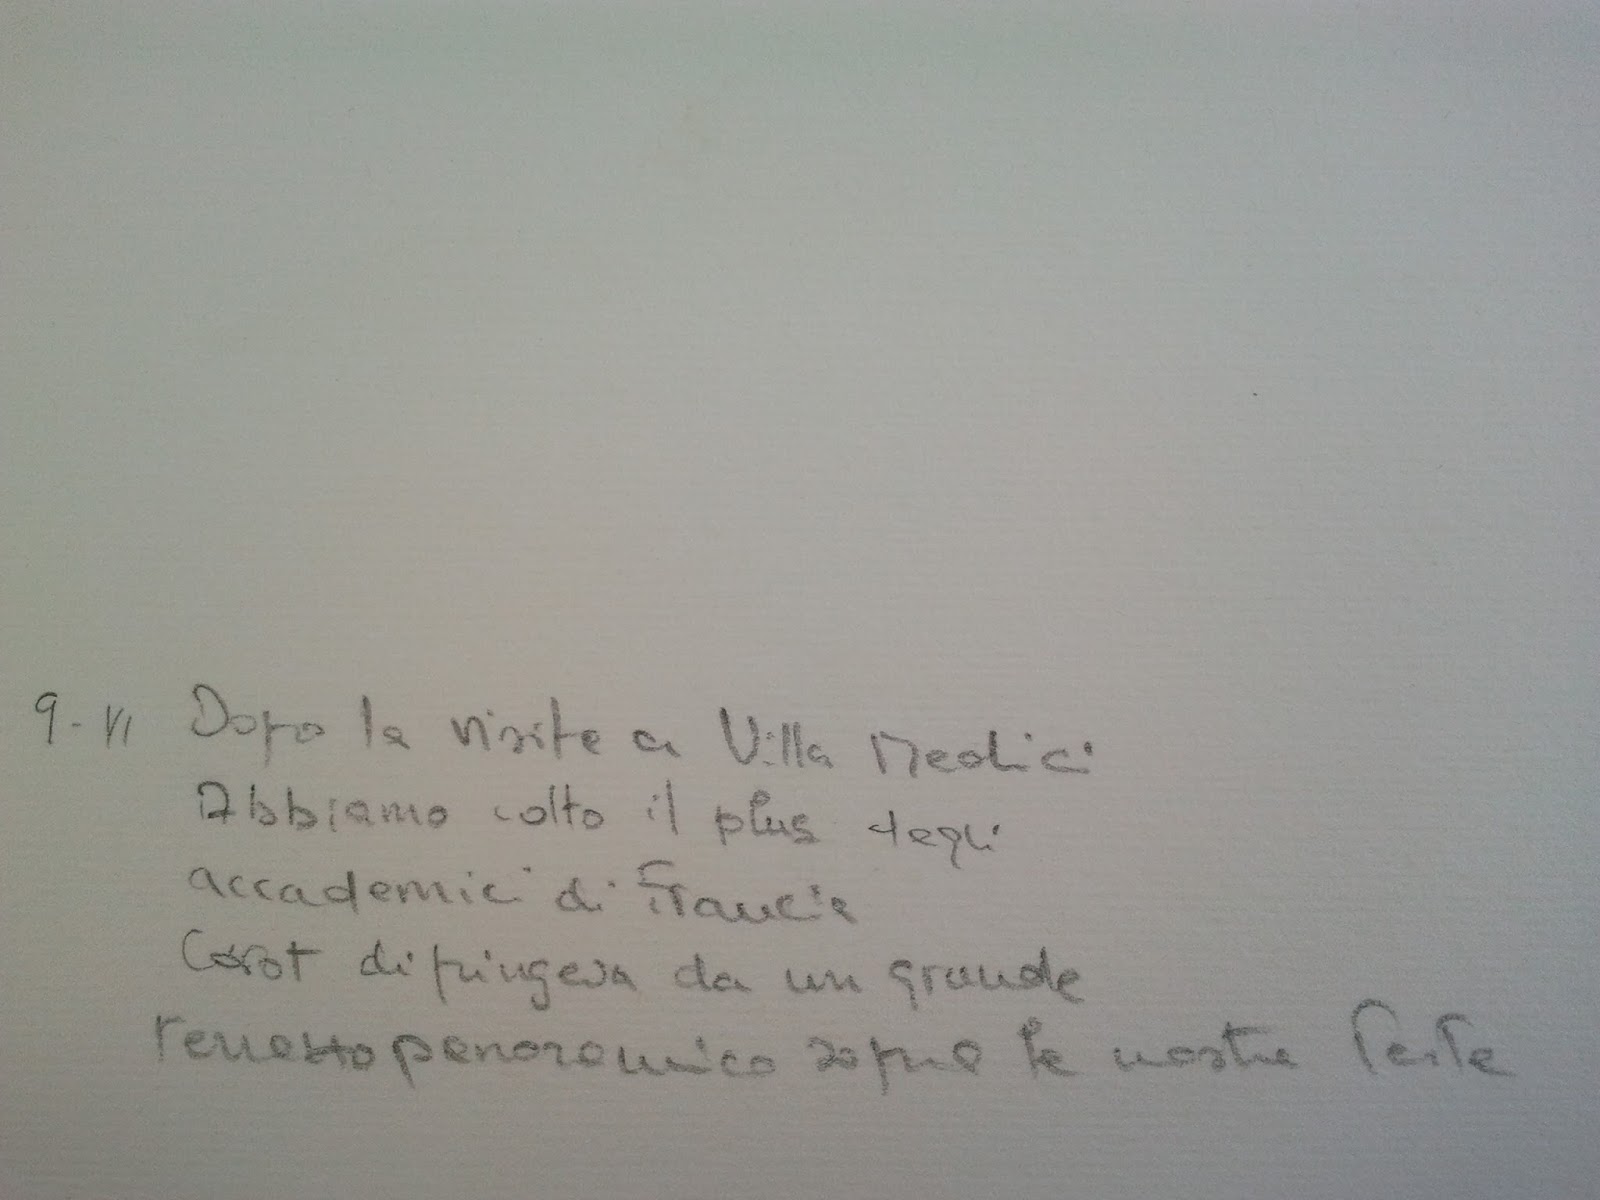 9-VI Dopo la visita a Villa Medici
Abbiamo colto il plus degli
accademici di Francia
Corot dipingeva da un grande
terrazzo panoramico sopra le nostre teste